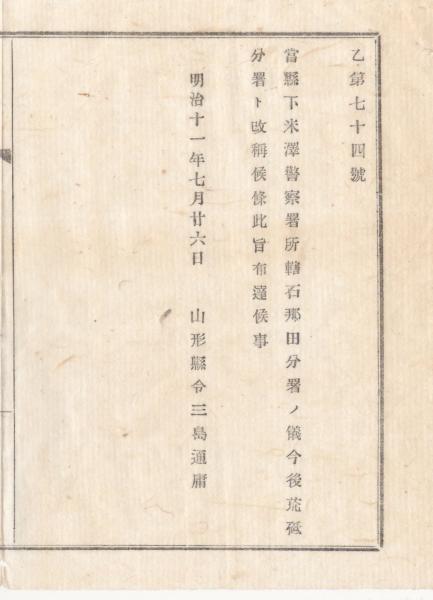 乙第七十四號
當縣下米澤警察署所轄石那田分署ノ儀今後荒砥
分署ト改稱候條此旨布達候事
明治十一年七月廿六日 山形縣令三島通庸